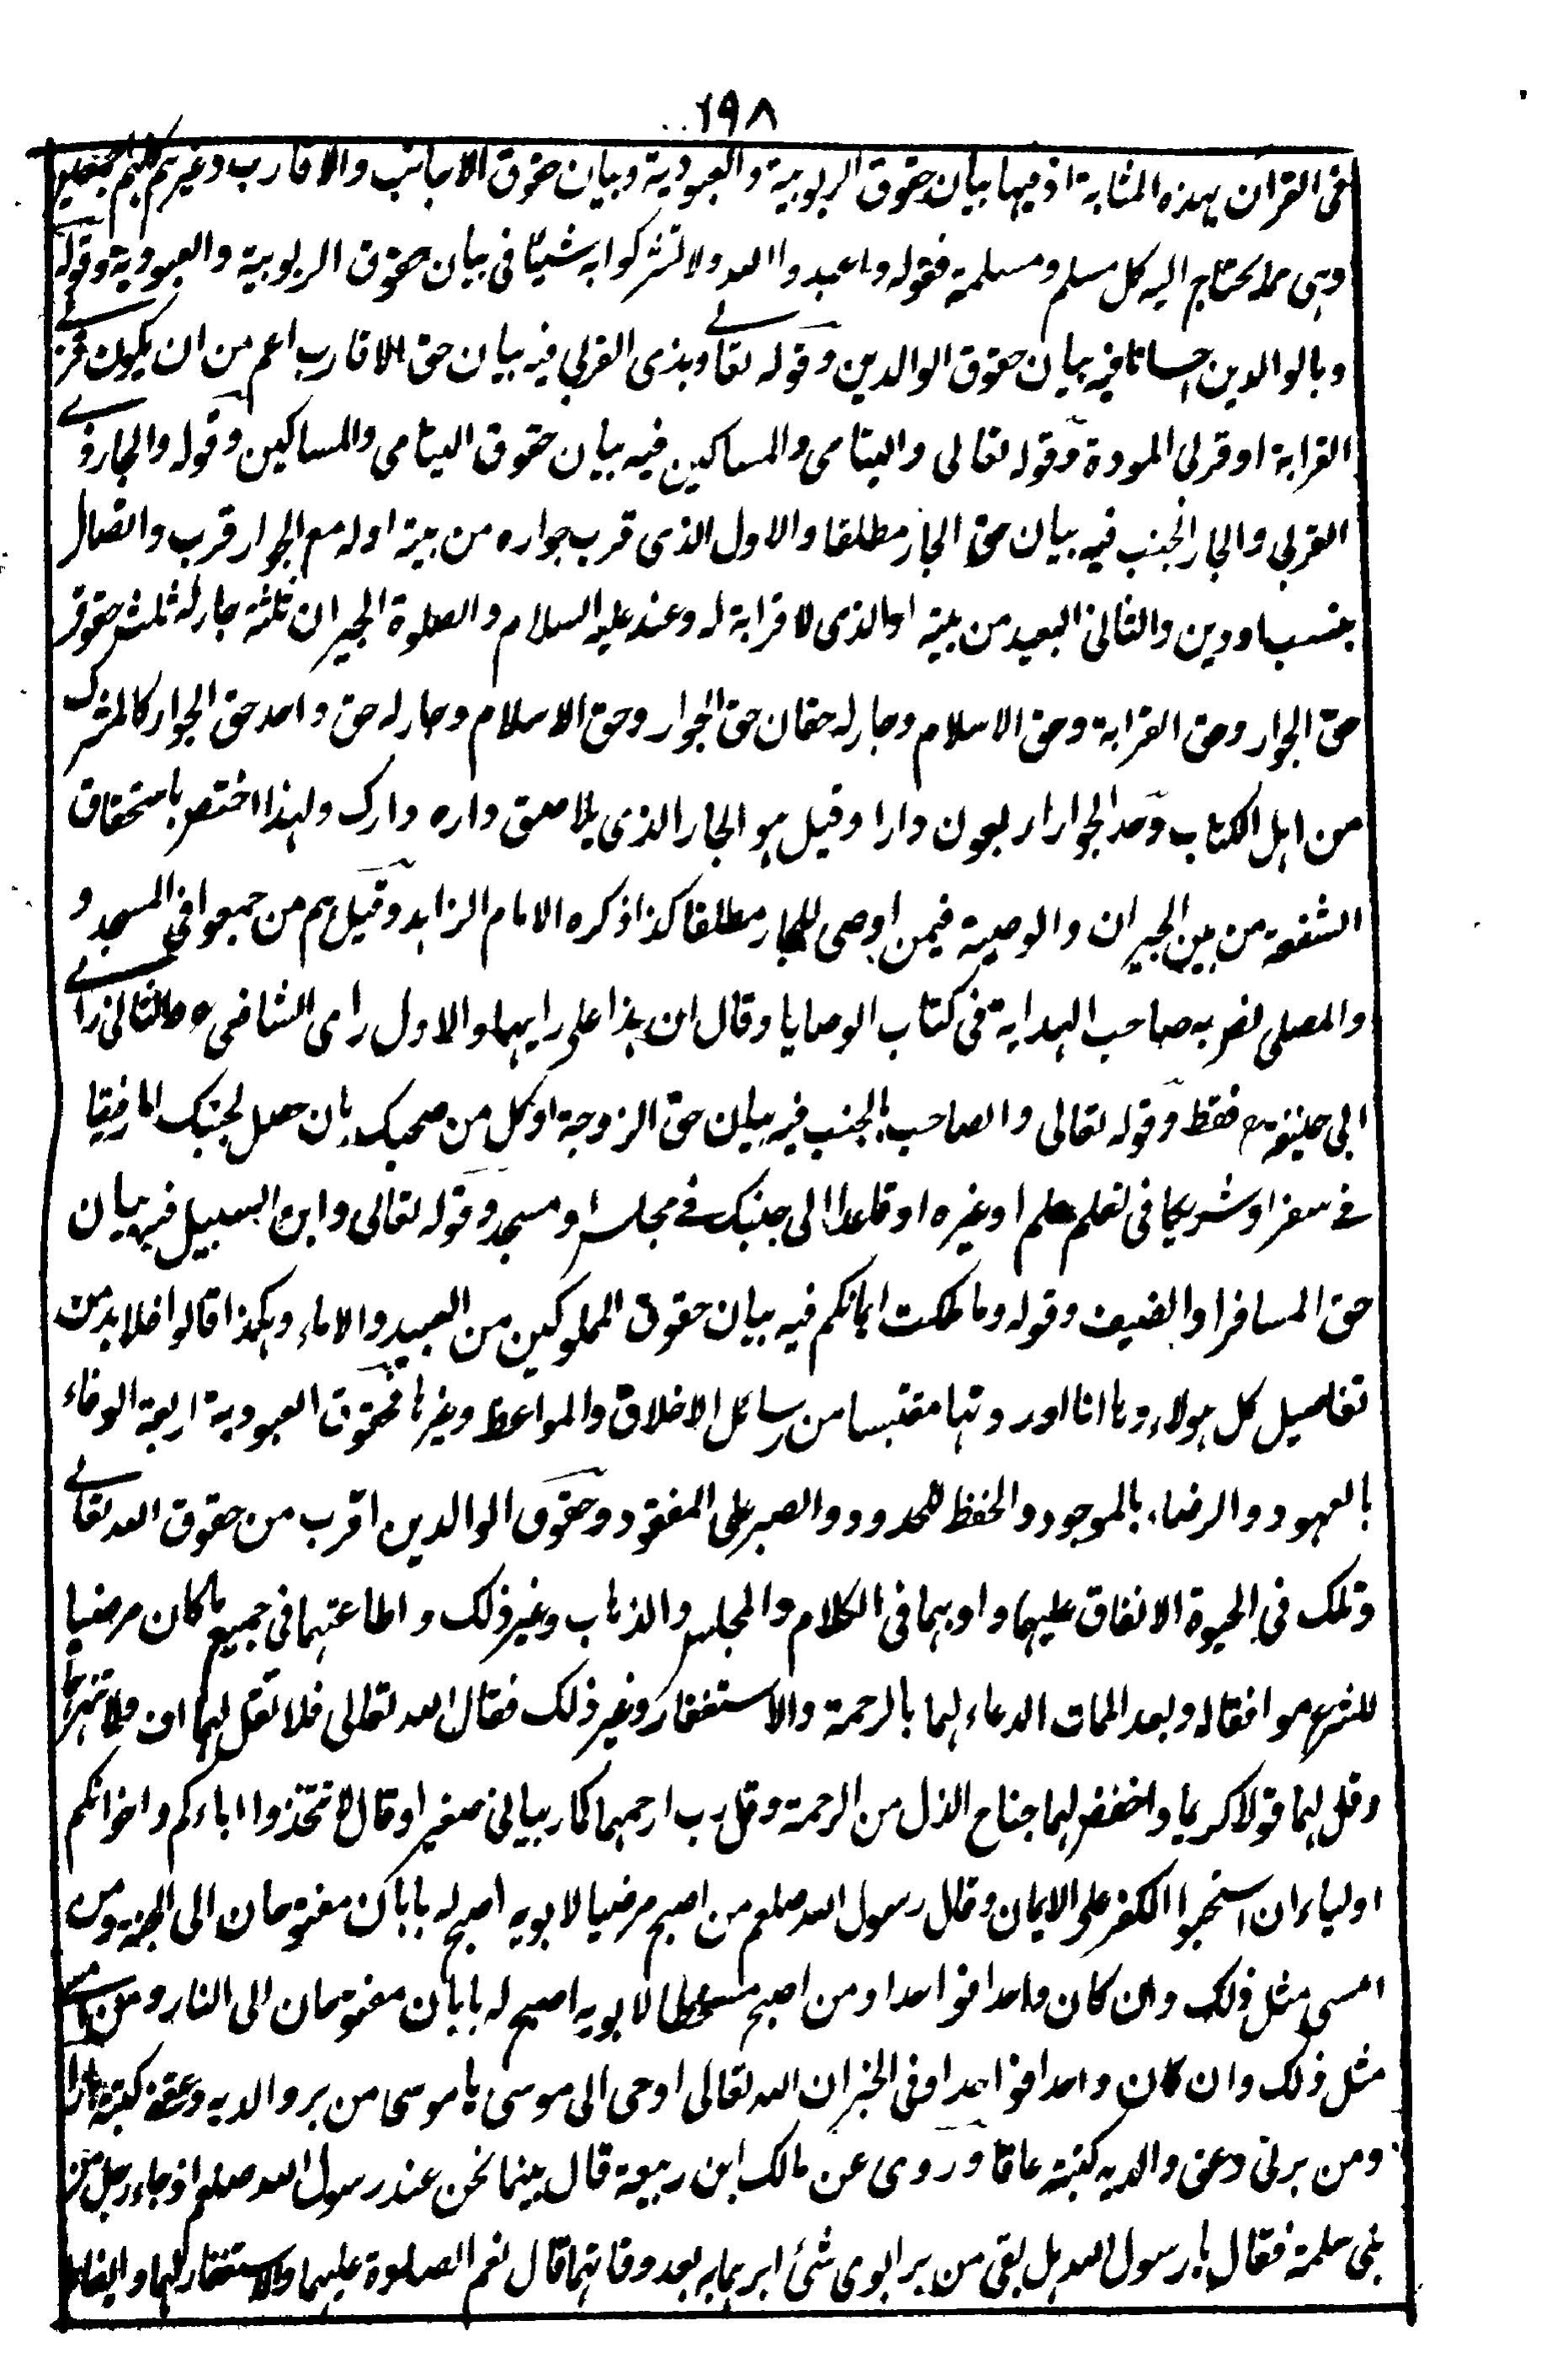 ٢٩٨
في القرآن بهذه المثابة اذ فيها بيان حقوق الربوبية والعبودية وبيان حقوق الاجانب والاقارب وغيرهم كلهم اجمعين
وهي مما يحتاج اليه كل مسلم ومسلمة فقوله واعبدوا الله ولا تشركوا به شيئا في بيان حقوق الربوبية والعبودية وقوله
وبالوالدين احسانا فيه بيان حقوق الوالدين وقوله تعالى وبذي القربي فيه بيان حق الاقارب اعم من ان يكون قربى
القرابة او قربى المودة وقوله تعالى واليتامى والمساكين فيه بيان حقوق اليتامى والمساكين وقوله والجار ذي
القربى والجار الجنب فيه بيان حق الجار مطلقا والاول الذي قرب جواره من بيته او له مع الجوار قرب واتصال
بنسب او دين والثاني البعيد من بيته او الذي لا قرابة له وعنه عليه السلام والصلوة الجيران ثلثة جار له ثلث حقوق
حق الجوار وحق القرابة وحق الاسلام وجار له حقان حق الجوار وحق الاسلام وجار له حق واحد حق الجوار كالمشرك
من اهل الكتاب وحد الجوار اربعون دارا وقيل هو الجار الذي يلاصق داره دارك ولهذا اختص باستحقاق
الشفعة من بين الجيران والوصية فيمن اوصى للجار مطلقا كذا ذكره الامام الزاهد وقيل هم من جمعوا في المسجد و
والمصلى نص به صاحب الهداية في كتاب الوصايا وقال ان هذا على رايهما والاول راى الشافعي رح والثاني راى
ابي حنيفة رح فقط وقوله تعالى والصاحب بالجنب فيه بيان حق الزوجة او كل من صحبك بان حصل لجنبك اما رفيقا
في سفر او شريكا في تعلم علم او غيره او قاعدا الى جنبك في مجلس او مسجد وقوله تعالى وابن السبيل فيه بيان
حق المسافر او الضيف وقوله وما ملكت ايمانكم فيه بيان حقوق المملوكين من العبيد والاماء وهكذا قالوا فلا بد من
تفاصيل كل هولاء وها انا اوردتها مقتبسا من رسائل الاخلاق والمواعظ وغيرها فحقوق العبودية اربعة الوفاء
بالعهود والرضاء بالموجود والحفظ للحدود والصبر على المفقود وحقوق الوالدين اقرب من حقوق الله تعالى
وتلك في الحيوة الانفاق عليهما وادبهما في الكلام والمجلس والذهاب وغير ذلك واطاعتهما في جميع ما كان مرضيا
للشرع موافقا له وبعد الممات الدعاء لهما بالرحمة والاستغفار وغير ذلك فقال الله تعالى فلا تقل لهما اف ولا تنهرهما
وقل لهما قولا كريما واخفض لهما جناح الذل من الرحمة وقل رب ارحمهما كما ربياني صغيرا وقال لا تتخذوا اباءكم واخوانكم
اولياء ان استحبوا الكفر على الايمان وقال رسول الله صلعم من اصبح مرضيا لابويه اصبح له بابان مفتوحان الى الجنة ومن
امسى مثل ذلك وان كان واحدا فواحدا ومن اصبح مسخطا لابويه اصبح له بابان مفتوحان الى النار ومن امسى
مثل ذلك وان كان واحدا فواحدا وفي الخبر ان الله تعالى اوحى الى موسى يا موسى من بر والديه وعقني كتبته بارا
ومن برني وعق والديه كتبته عاقا وروى عن مالك ابن ربيعة قال بينما نحن عند رسول الله صلعم اذ جاء رجل من
بني سلمة فقال يا رسول الله هل بقي من بر ابوى شئ ابرهما به بعد وفاتهما قال نعم الصلوة عليهما والاستغفار لهما وايفاء